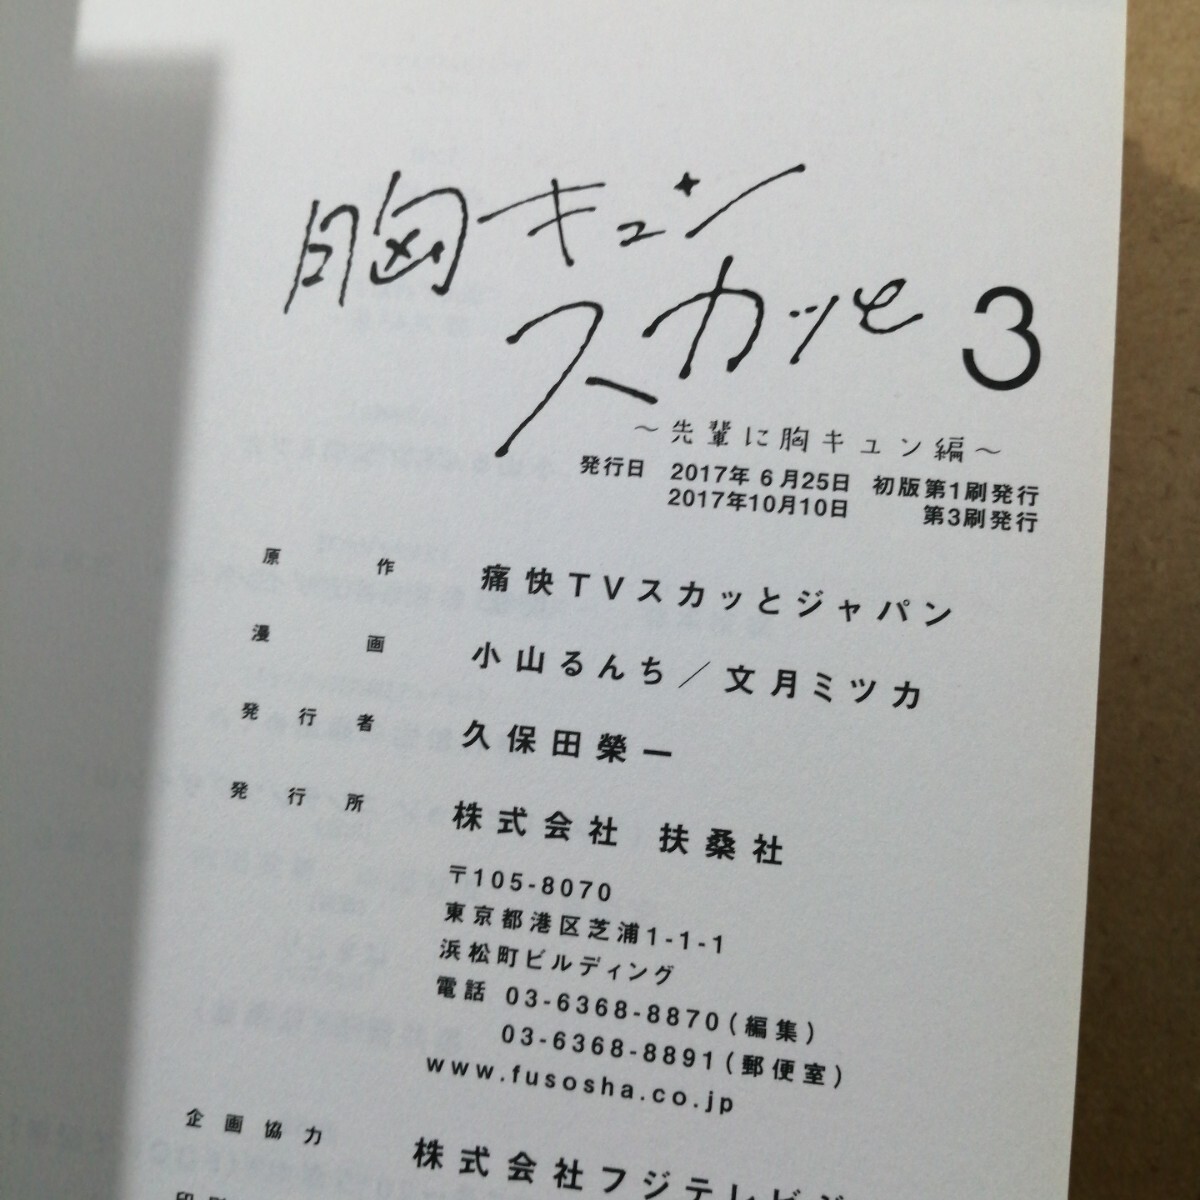 胸キュン
スカッと 3
～先輩に胸キュン編～
発行日 2017年 6月25日 初版第1刷発行
2017年10月10日 第3刷発行
原作 痛快TVスカッとジャパン
漫画 小山るんち／文月ミツカ
発行者 久保田榮一
発行所 株式会社 扶桑社
〒105-8070
東京都港区芝浦1-1-1
浜松町ビルディング
電話 03-6368-8870(編集)
03-6368-8891(郵便室)
www.fusosha.co.jp
企画協力 株式会社フジテレビジ